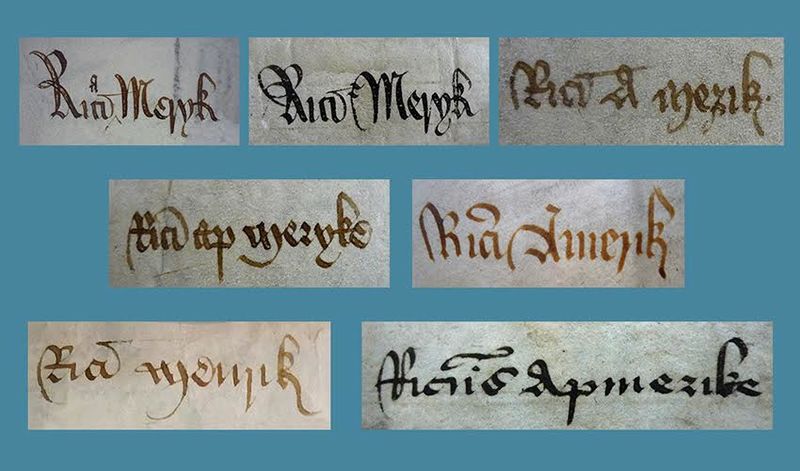 Ric̄ A Meryk
Ric̄ Meryk
Ric̄ A merik
Ric̄ ap meryke
Ric̄i Amerik
Ric̄ merik
Ricūs Apmerike